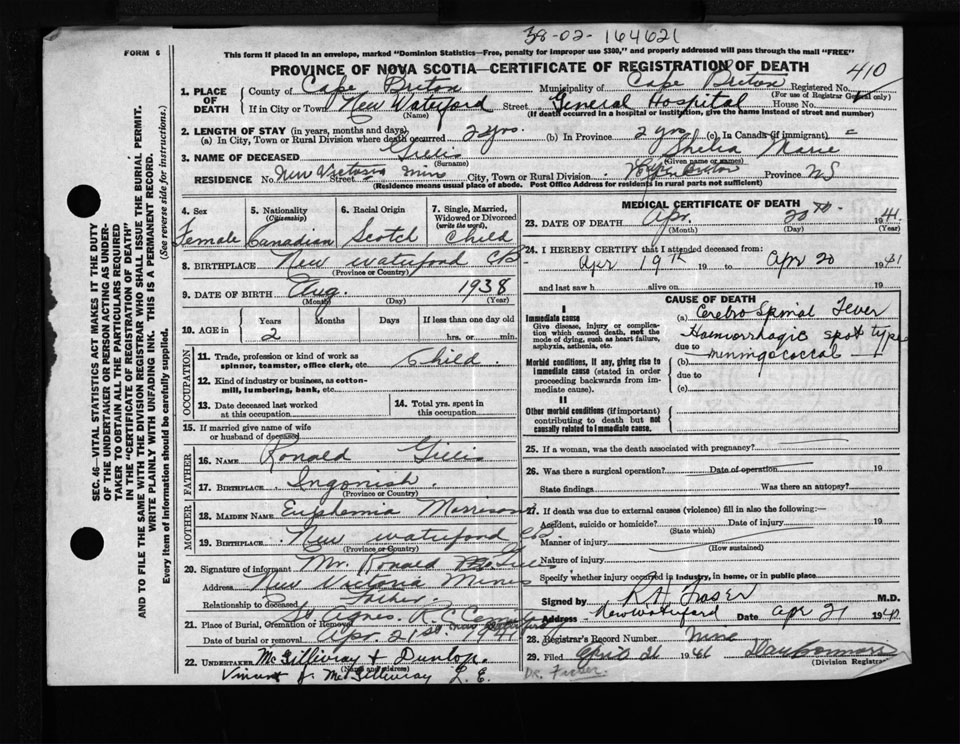 38-02-164621
FORM 6
This form if placed in an envelope, marked "Dominion Statistics—Free, penalty for improper use $300," and properly addressed will pass through the mail "FREE"
PROVINCE OF NOVA SCOTIA—CERTIFICATE OF REGISTRATION OF DEATH
410
1. PLACE OF DEATH
County of Cape Breton Municipality of Cape Breton Registered No.
(For use of Registrar General only)
If in City or Town New Waterford Street General Hospital House No.
(Name) (If death occurred in a hospital or institution, give the name instead of street and number)
2. LENGTH OF STAY (in years, months and days)
(a) In City, Town or Rural Division where death occurred 2 yrs. (b) In Province 2 yrs (c) In Canada (if immigrant)
3. NAME OF DECEASED Gillis Shelia Marie
(Surname) (Given name or names)
RESIDENCE No. New Victoria Street Mines City, Town or Rural Division Cape Breton Province NS
(Residence means usual place of abode. Post Office Address for residents in rural parts not sufficient)
4. Sex 5. Nationality (Citizenship) 6. Racial Origin 7. Single, Married, Widowed or Divorced (write the word)
Female Canadian Scotch Child
8. BIRTHPLACE New Waterford CB
(Province or Country)
9. DATE OF BIRTH Aug. 1938
(Month) (Day) (Year)
10. AGE in Years Months Days If less than one day old
2 hrs. or min.
OCCUPATION
11. Trade, profession or kind of work as spinner, teamster, office clerk, etc. Child.
12. Kind of industry or business, as cotton-mill, lumbering, bank, etc.
13. Date deceased last worked at this occupation
14. Total yrs. spent in this occupation
15. If married give name of wife or husband of deceased
FATHER
16. NAME Ronald Gillis
17. BIRTHPLACE Ingonish.
(Province or Country)
MOTHER
18. MAIDEN NAME Euphemia Morrison
19. BIRTHPLACE New Waterford CB
(Province or Country)
20. Signature of informant Mr. Ronald Gillis
Address New Victoria Mines
Relationship to deceased Father.
21. Place of Burial, Cremation or Removal St Agnes. R.C. Cemetery
Date of burial or removal Apr. 21st. 1941
22. UNDERTAKER McGillivray & Dunlop.
(Name and address)
Vincent J. McGillivray L. E.
MEDICAL CERTIFICATE OF DEATH
23. DATE OF DEATH Apr. 20th 1941
(Month) (Day) (Year)
24. I HEREBY CERTIFY that I attended deceased from:
Apr 19th 19 to Apr 20 1941
and last saw h alive on 19
CAUSE OF DEATH
I
Immediate cause
Give disease, injury or complication which caused death, not the mode of dying, such as heart failure, asphyxia, asthenia, etc.
(a) Cerebro Spinal Fever
Haemorrhagic spot type
due to meningococcal
Morbid conditions, if any, giving rise to immediate cause (stated in order proceeding backwards from immediate cause).
(b)
due to
(c)
II
Other morbid conditions (if important) contributing to death but not causally related to immediate cause.
25. If a woman, was the death associated with pregnancy?
26. Was there a surgical operation? Date of operation 19
State findings Was there an autopsy?
27. If death was due to external causes (violence) fill in also the following:—
Accident, suicide or homicide? Date of injury 19
(State which)
Manner of injury
(How sustained)
Nature of injury
Specify whether injury occurred in industry, in home, or in public place
Signed by R H Fraser M.D.
Address New Waterford Date Apr 21 1941
28. Registrar's Record Number nine
29. Filed April 26 1941
(Division Registrar)
Dr. Fraser.
SEC. 46—VITAL STATISTICS ACT MAKES IT THE DUTY
OF THE UNDERTAKER OR PERSON ACTING AS UNDER-
TAKER TO OBTAIN ALL THE PARTICULARS REQUIRED
IN THE "CERTIFICATE OF REGISTRATION OF DEATH"
AND TO FILE THE SAME WITH THE DIVISION REGISTRAR WHO SHALL ISSUE THE BURIAL PERMIT.
WRITE PLAINLY WITH UNFADING INK. THIS IS A PERMANENT RECORD.
Every item of information should be carefully supplied. (See reverse side for instructions.)